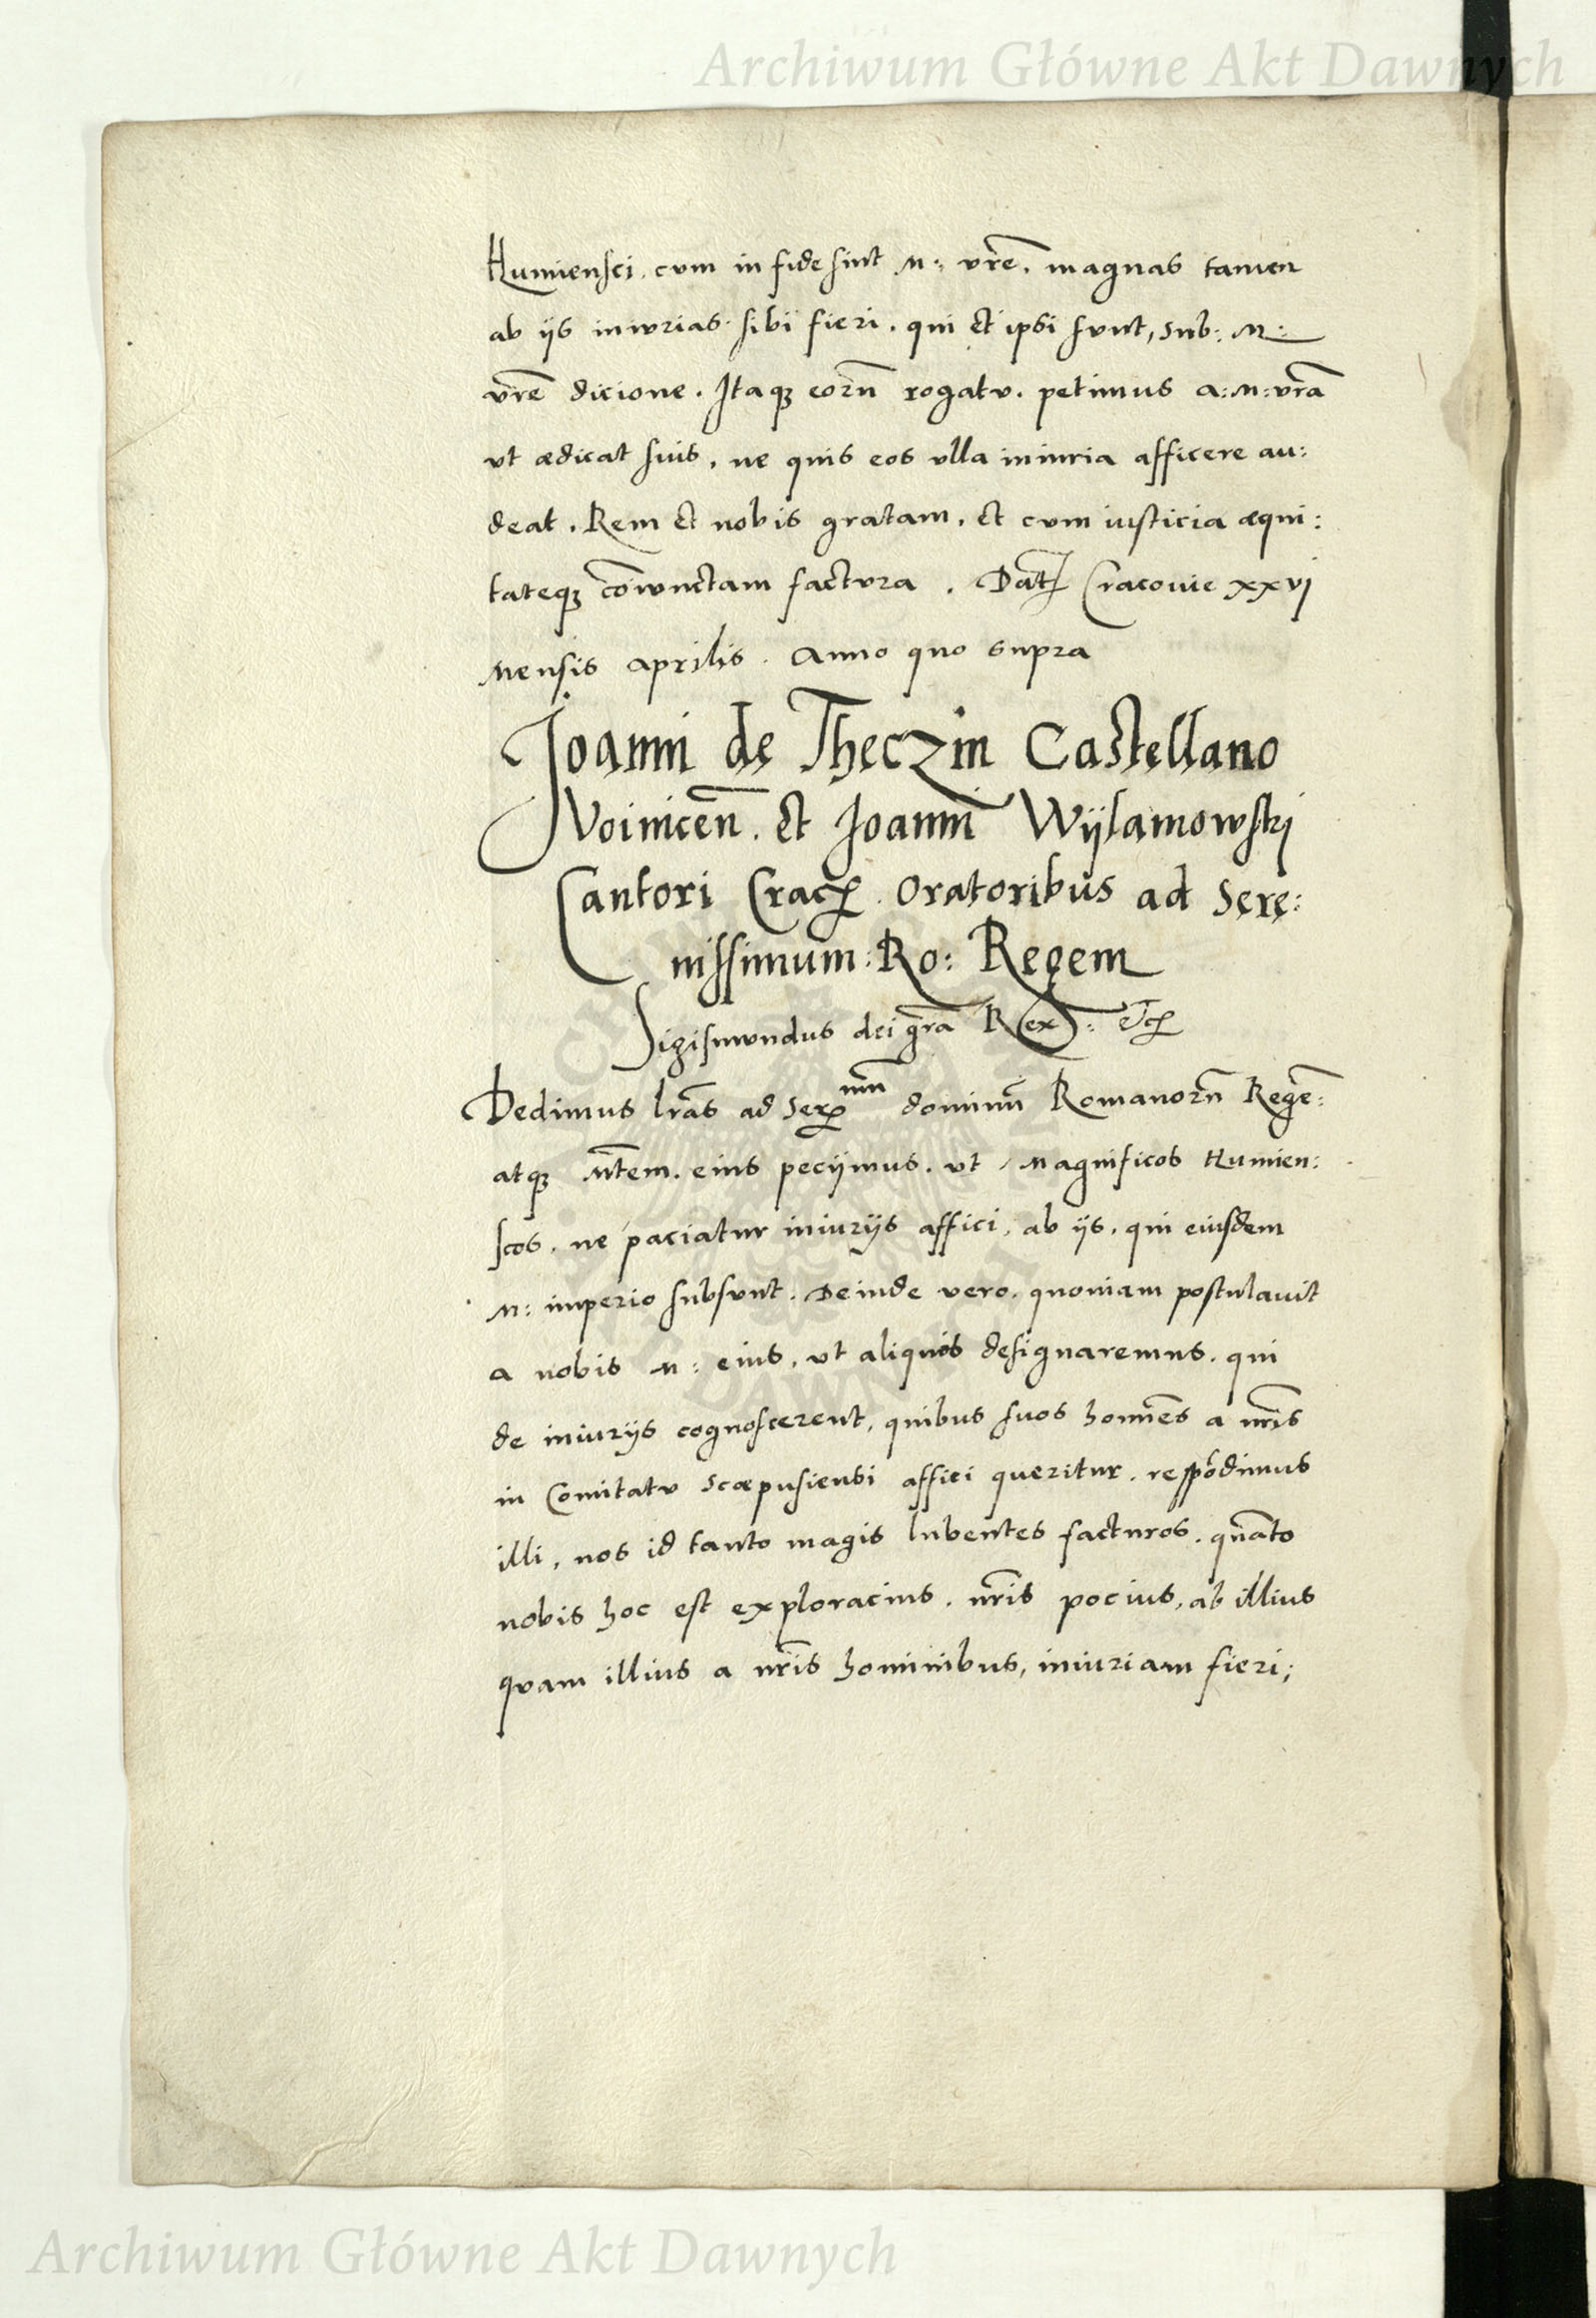 Archiwum Główne Akt Dawnych
Humiensci. cum in fide sint M: vr̄e. magnas tamen
ab ijs iniurias sibi fieri. qui et ipsi sunt, sub: M:
vr̄e dicione. Itaqꝫ eorū rogatu. petimus a: M: vr̄a
vt ædicat suis, ne quis eos vlla iniuria afficere au:
deat. Rem et nobis gratam, et cum iusticia æqui:
tateqꝫ cōiunctam factura. Dat̄ Cracouie xxvj
Mensis aprilis. Anno quo supra
Joanni de Theczin Castellano
Voinicen̄. et Joanni Wijlamowskj
Cantori Crac̄. Oratoribus ad Sere:
nissimum: Ro: Regem
Sigismundus dei gr̄a Rex: etc̄
Dedimus lr̄as ad Serꝫ^mū dominū Romanorū Regē:
atqꝫ M̄tem. eius pecijmus. vt Magnificos Humien:
scos. ne paciatur iniurijs affici, ab ijs. qui eiusdem
M: imperio subsunt. Deinde vero. quoniam postulauit
a nobis M: eius, vt aliquos designaremus. qui
de iniurijs cognoscerent, quibus suos homīes a nr̄is
in Comitatu Scæpusiensi affici queritur. respōdimus
illi, nos id tanto magis lubentes facturos. quāto
nobis hoc est exploracius. nr̄is pocius, ab illius
quam illius a nr̄is hominibus, iniuriam fieri;
Archiwum Główne Akt Dawnych